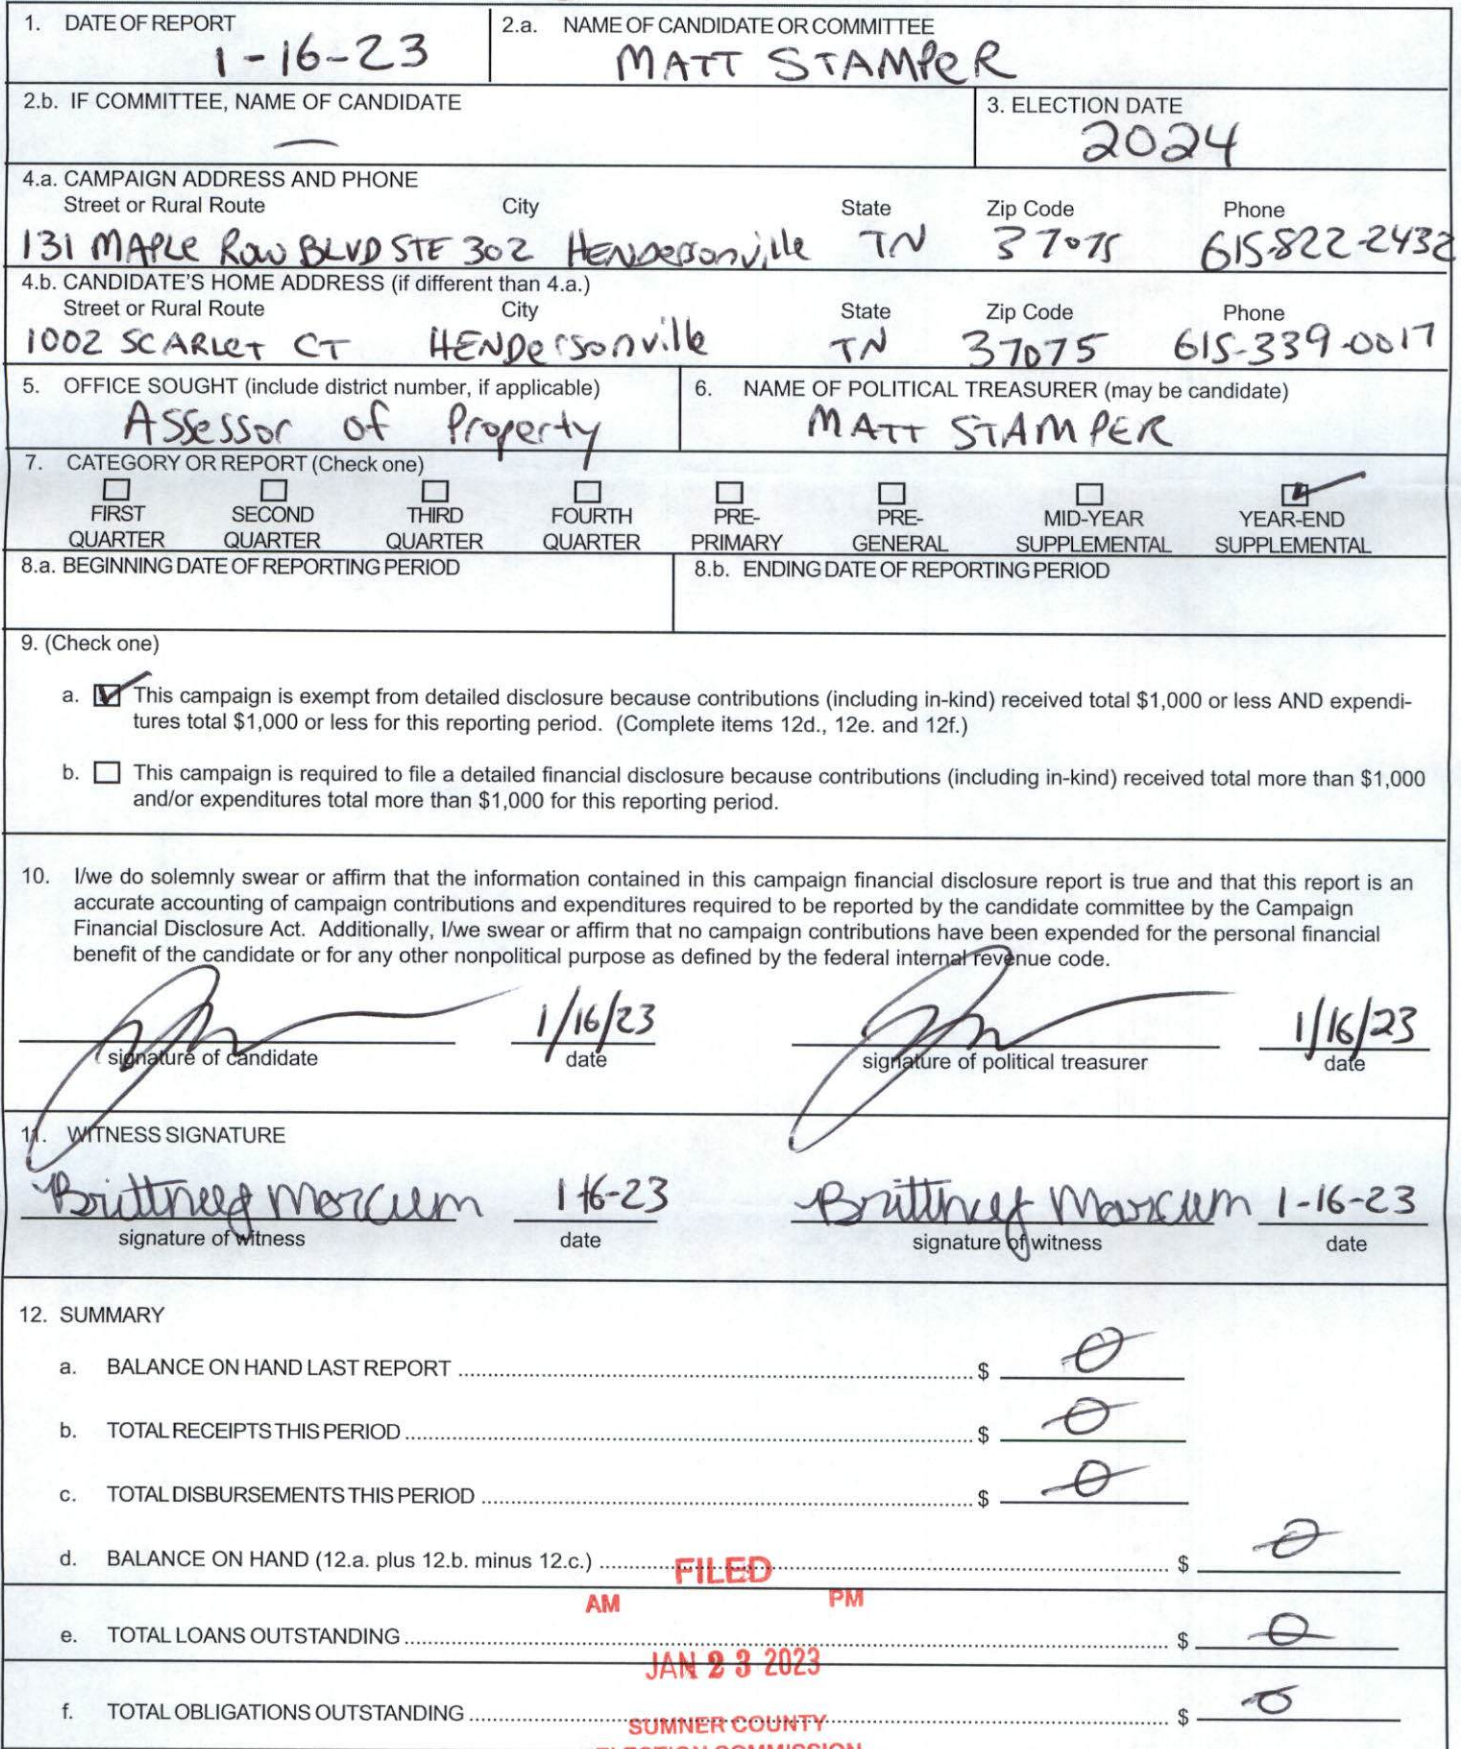 1. DATE OF REPORT
1-16-23
2.a. NAME OF CANDIDATE OR COMMITTEE
MATT STAMPER
2.b. IF COMMITTEE, NAME OF CANDIDATE
—
3. ELECTION DATE
2024
4.a. CAMPAIGN ADDRESS AND PHONE
Street or Rural Route City State Zip Code Phone
131 MAPLE ROW BLVD STE 302 HENDERSONVILLE TN 37075 615-822-2432
4.b. CANDIDATE'S HOME ADDRESS (if different than 4.a.)
Street or Rural Route City State Zip Code Phone
1002 SCARLET CT HENDERSONVILLE TN 37075 615-339-0017
5. OFFICE SOUGHT (include district number, if applicable)
Assessor of Property
6. NAME OF POLITICAL TREASURER (may be candidate)
MATT STAMPER
7. CATEGORY OR REPORT (Check one)
FIRST SECOND THIRD FOURTH PRE- PRE- MID-YEAR YEAR-END
QUARTER QUARTER QUARTER QUARTER PRIMARY GENERAL SUPPLEMENTAL SUPPLEMENTAL
8.a. BEGINNING DATE OF REPORTING PERIOD
8.b. ENDING DATE OF REPORTING PERIOD
9. (Check one)
a. This campaign is exempt from detailed disclosure because contributions (including in-kind) received total $1,000 or less AND expendi-
tures total $1,000 or less for this reporting period. (Complete items 12d., 12e. and 12f.)
b. This campaign is required to file a detailed financial disclosure because contributions (including in-kind) received total more than $1,000
and/or expenditures total more than $1,000 for this reporting period.
10. I/we do solemnly swear or affirm that the information contained in this campaign financial disclosure report is true and that this report is an
accurate accounting of campaign contributions and expenditures required to be reported by the candidate committee by the Campaign
Financial Disclosure Act. Additionally, I/we swear or affirm that no campaign contributions have been expended for the personal financial
benefit of the candidate or for any other nonpolitical purpose as defined by the federal internal revenue code.
1/16/23 1/16/23
signature of candidate date signature of political treasurer date
11. WITNESS SIGNATURE
Brittney Marcum 1-16-23 Brittney Marcum 1-16-23
signature of witness date signature of witness date
12. SUMMARY
a. BALANCE ON HAND LAST REPORT $ 0
b. TOTAL RECEIPTS THIS PERIOD $ 0
c. TOTAL DISBURSEMENTS THIS PERIOD $ 0
d. BALANCE ON HAND (12.a. plus 12.b. minus 12.c.) $ 0
FILED
AM PM
e. TOTAL LOANS OUTSTANDING $ 0
JAN 23 2023
f. TOTAL OBLIGATIONS OUTSTANDING $ 0
SUMNER COUNTY
ELECTION COMMISSION